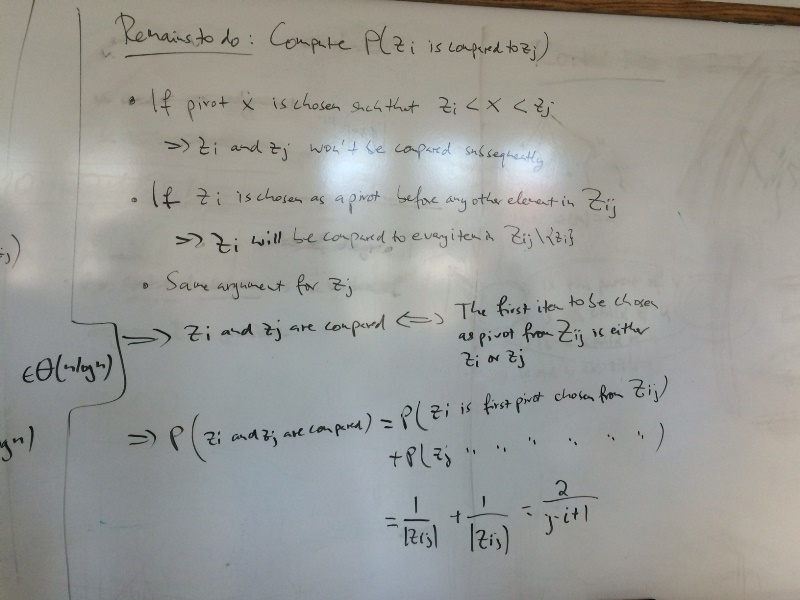 Remains to do: Compute P(zi is compared to zj)
• If pivot x is chosen such that zi < x < zj
=> zi and zj won't be compared subsequently
• If zi is chosen as a pivot before any other element in Zij
=> zi will be compared to every item in Zij\{zi}
• Same argument for zj
=> zi and zj are compared <=> The first item to be chosen
as pivot from Zij is either
zi or zj
∈Θ(n log n)
=> P(zi and zj are compared) = P(zi is first pivot chosen from Zij)
+ P(zj " " " " " ")
= 1/|Zij| + 1/|Zij| = 2/j-i+1